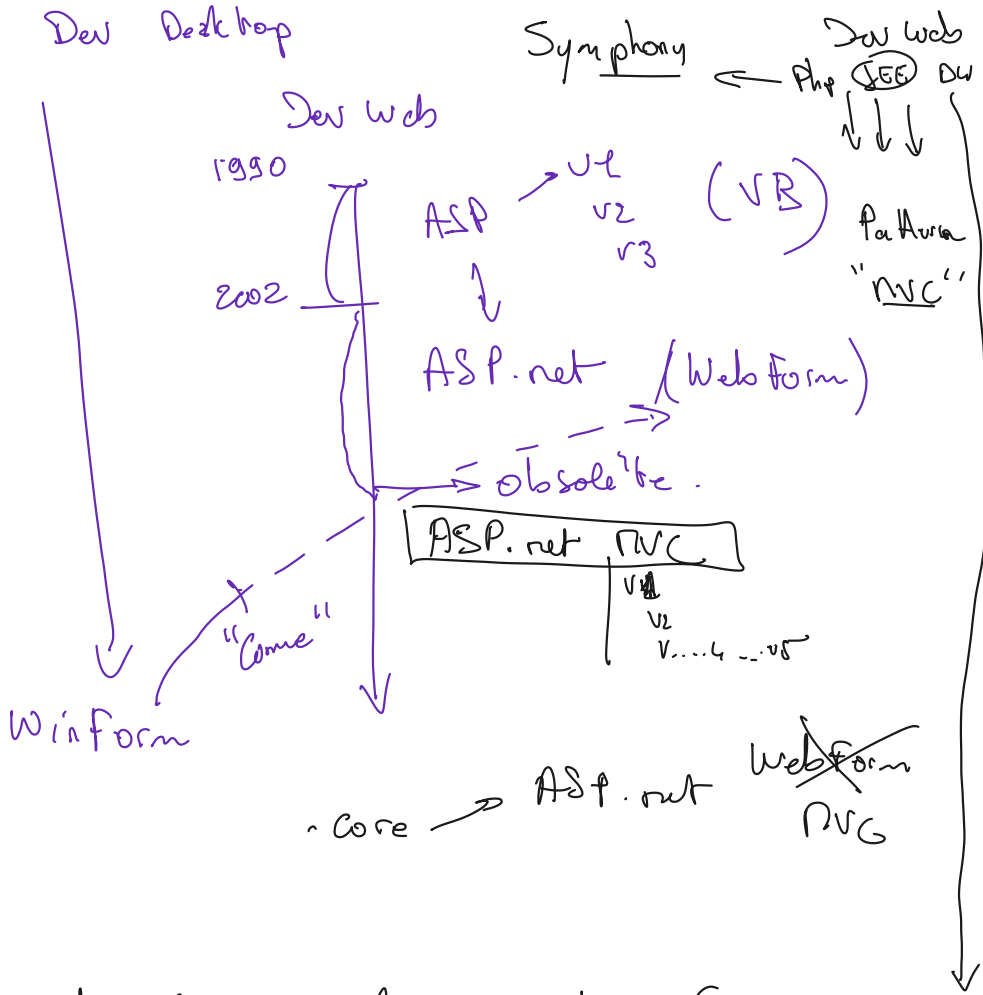 Dev Desktop
Symphony
Dev web
Php JEE
Dev web
1990
ASP
v1
v2
v3
(VB)
Pattern
"MVC"
2002
ASP.net (WebForm)
obsolète.
ASP.net MVC
v1
v2
v....4 ... v5
"Comme"
WinForm
. Core
ASP.net
WebForm
MVC